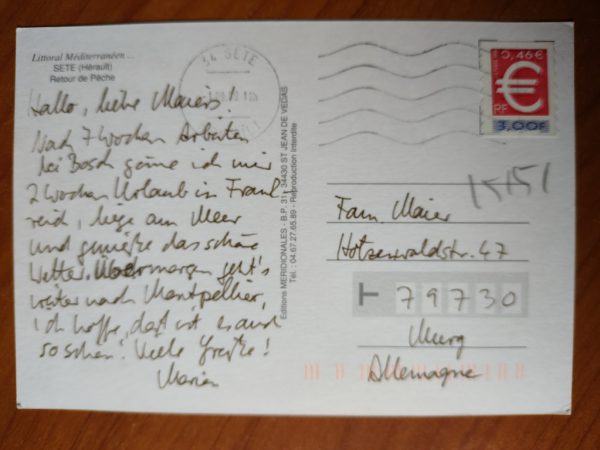 Littoral Méditerranéen ...
SETE (Hérault)
Retour de Pêche
Hallo, liebe Maiers!
Nach 7 Wochen Arbeiten
bei Bosch gönne ich mir
2 Wochen Urlaub in Frank-
reich, liege am Meer
und genieße das schöne
Wetter. Übermorgen geht's
weiter nach Montpellier,
ich hoffe, dort ist es auch
so schön! Viele Grüße!
Marien
Editions MERIDIONALES - B.P. 31 - 34430 ST JEAN DE VEDAS
Tél. 04.67.27.65.89 - Reproduction Interdite
34 SETE
0,46€
€
RF
3,00F
15151
Fam. Maier
Hotzenwaldstr. 47
79730
Murg
Allemagne